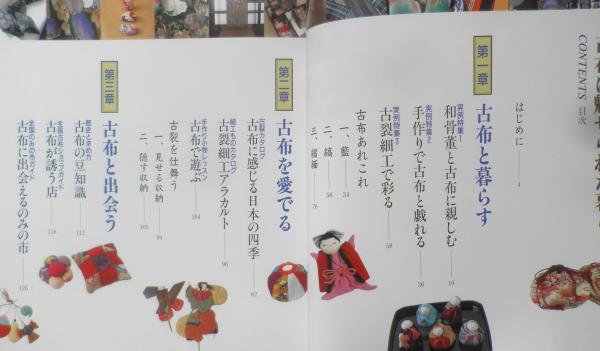 CONTENTS 目次
はじめに 4
第一章 古布と暮らす
実例特集1
和骨董と古布に親しむ 10
実例特集2
手作りで古布と戯れる 36
実例特集3
古裂細工で彩る 58
古布あれこれ
一、藍 34
二、縞 56
三、縮緬 78
第二章 古布を愛でる
古裂カタログ
古布に感じる日本の四季 82
細工ものカタログ
古裂細工アラカルト 96
手作り小物レッスン
古布で遊ぶ 104
古裂を仕舞う
一、見せる収納 94
二、隠す収納 102
第三章 古布と出会う
歴史と求め方
古布の豆知識 112
全国古布ショップガイド
古布が誘う店 118
全国のみの市ガイド
古布に出会えるのみの市 126